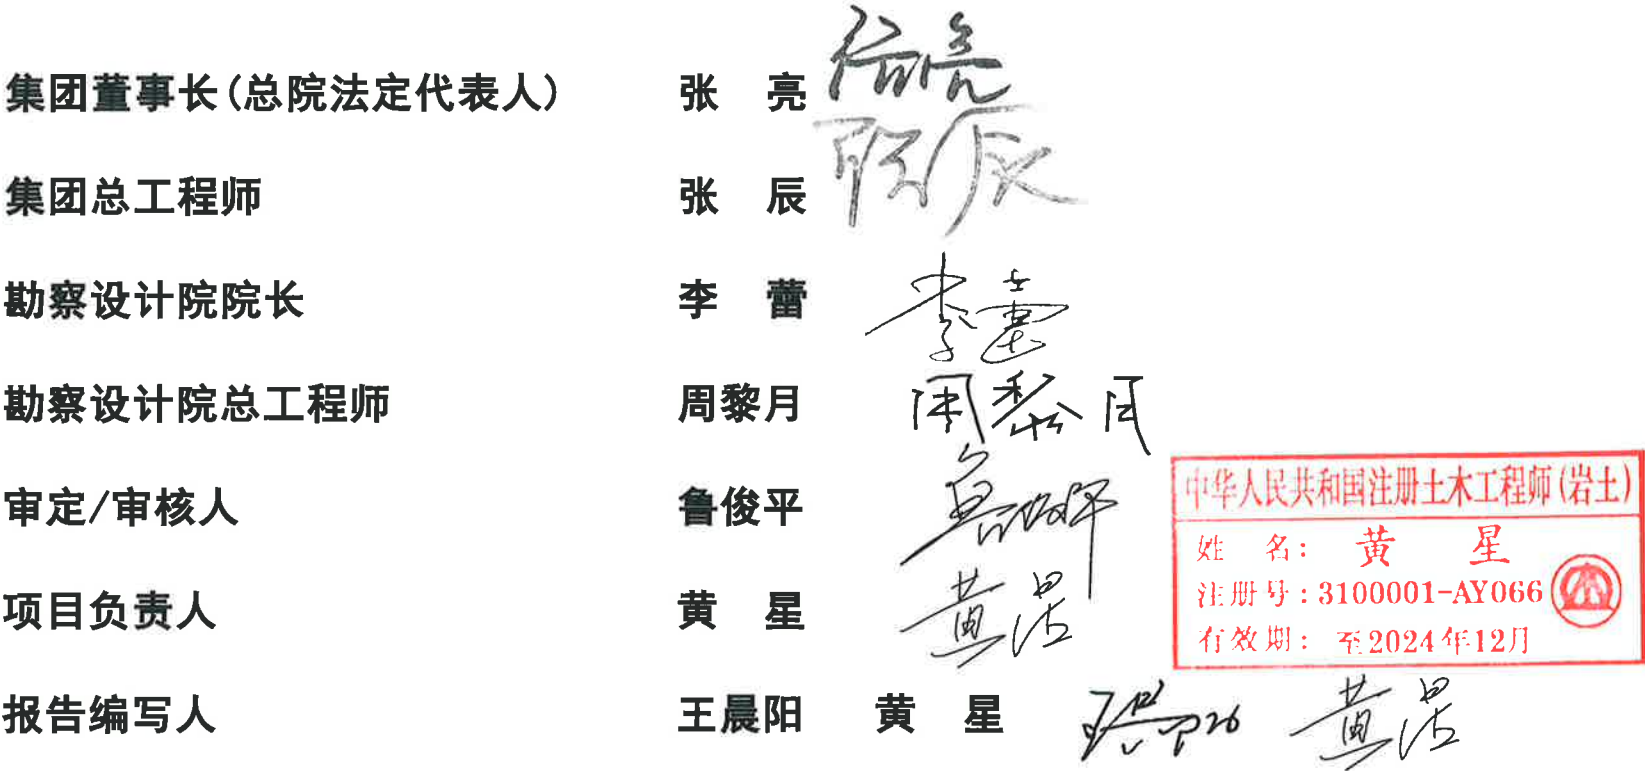 集团董事长(总院法定代表人) 张 亮 张亮
集团总工程师 张 辰 张辰
勘察设计院院长 李 蕾 李蕾
勘察设计院总工程师 周黎月 周黎月
审定/审核人 鲁俊平 鲁俊平
项目负责人 黄 星 黄星
报告编写人 王晨阳 黄 星 王晨阳 黄星
中华人民共和国注册土木工程师(岩土)
姓 名: 黄 星
注册号:3100001-AY066
有效期: 至2024年12月